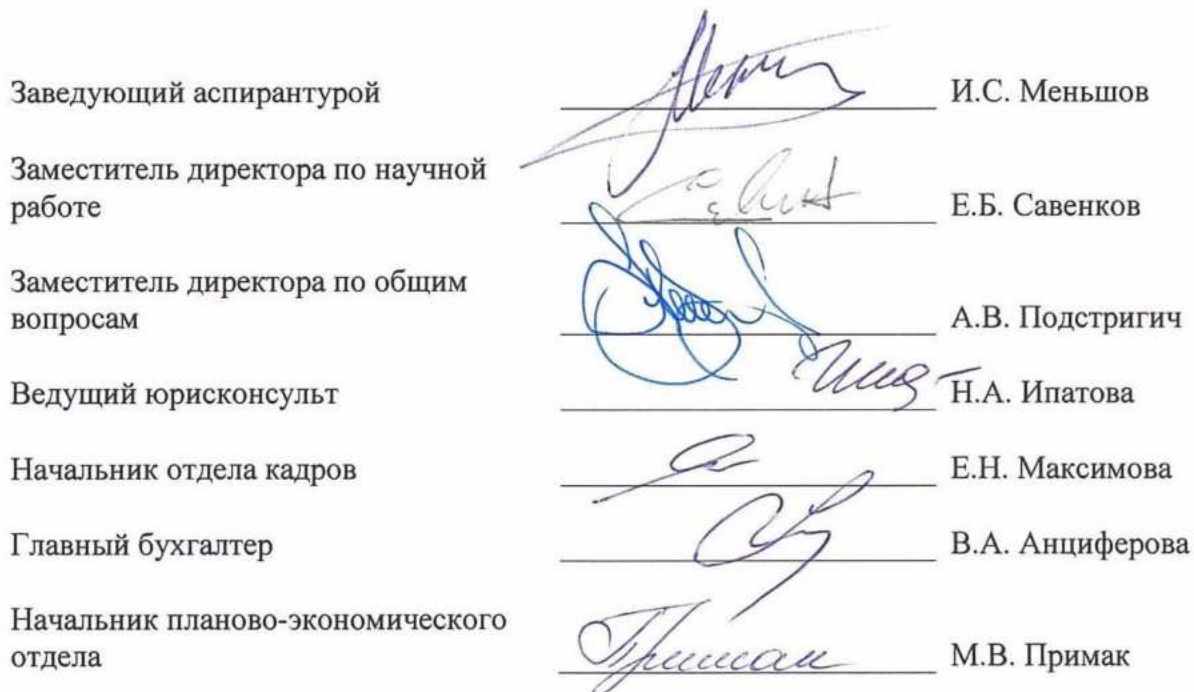 Заведующий аспирантурой И.С. Меньшов
Заместитель директора по научной
работе Е.Б. Савенков
Заместитель директора по общим
вопросам А.В. Подстригич
Ведущий юрисконсульт Н.А. Ипатова
Начальник отдела кадров Е.Н. Максимова
Главный бухгалтер В.А. Анциферова
Начальник планово-экономического
отдела Примак М.В. Примак